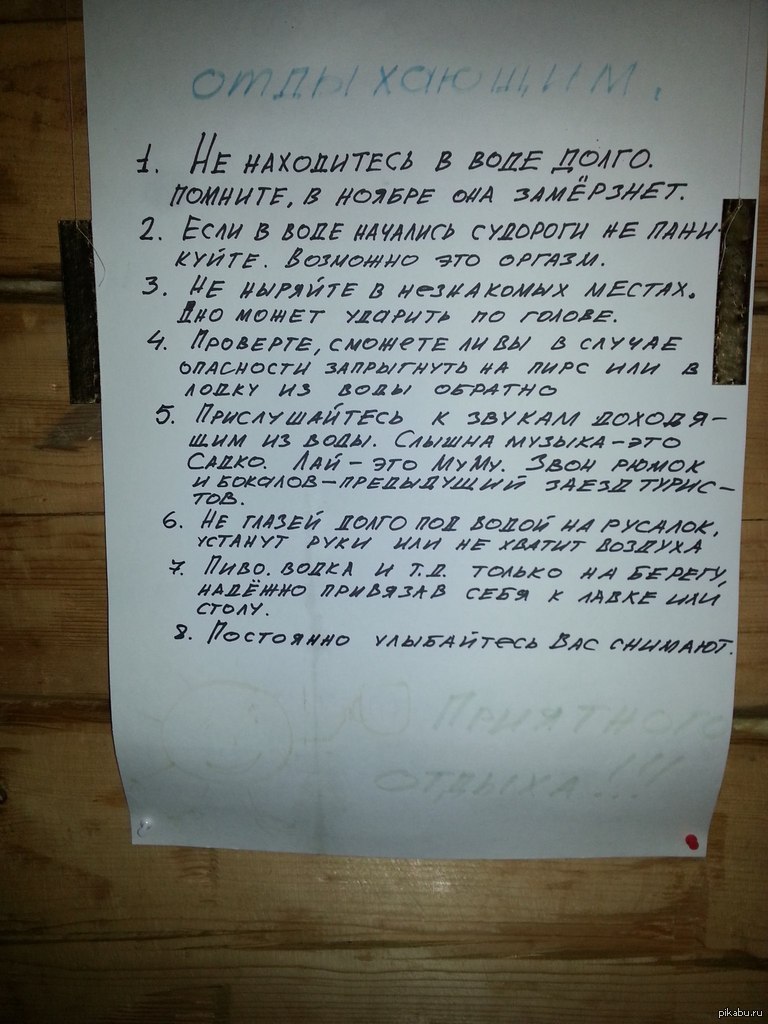 отдыхающим.
1. Не находитесь в воде долго.
Помните, в ноябре она замёрзнет.
2. Если в воде начались судороги не пани-
куйте. Возможно это оргазм.
3. Не ныряйте в незнакомых местах.
Дно может ударить по голове.
4. Проверте, сможете ли вы в случае
опасности запрыгнуть на пирс или в
лодку из воды обратно
5. Прислушайтесь к звукам доходя-
щим из воды. Слышна музыка - это
Садко. Лай - это МуМу. Звон рюмок
и бокалов - предыдущий заезд турис-
тов.
6. Не глазей долго под водой на русалок,
устанут руки или не хватит воздуха
7. Пиво. водка и т.д. только на берегу,
надёжно привязав себя к лавке или
столу.
8. Постоянно улыбайтесь Вас снимают.
Приятного
отдыха!!!
pikabu.ru